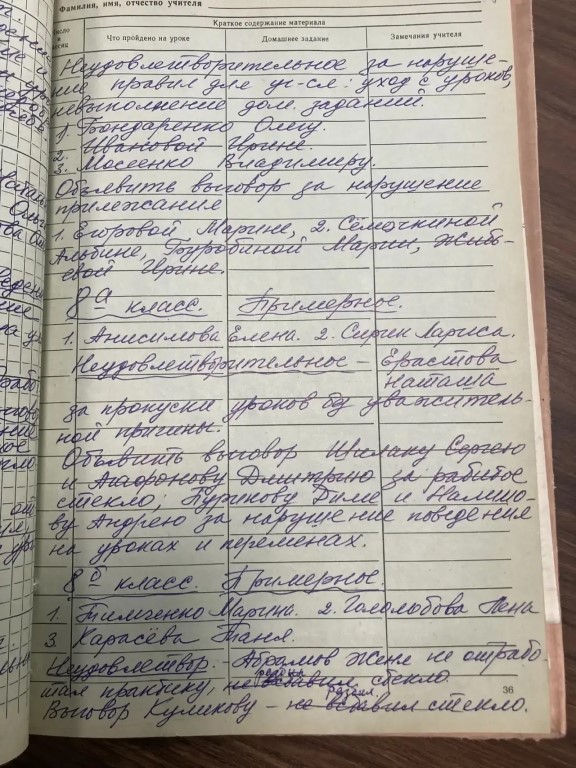 Фамилия, имя, отчество учителя
Число и месяц
Краткое содержание материала
Что пройдено на уроке
Домашнее задание
Замечания учителя
Неудовлетворительное за наруше-
ние правил для уч-ся: уход с уроков,
невыполнение дом. заданий.
1. Бондаренко Олегу.
2. Ивановой Ирине.
3. Мосеенко Владимиру.
Объявить выговор за нарушение
прилежания
1. Егоровой Марине, 2. Сёмочкиной
Альбине, Буробиной Марии,
евой Ирине.
8а класс. Примерное.
1. Анисимова Елена. 2. Сирик Лариса.
Неудовлетворительное - Ерастова
Наташа
за пропуски уроков без уважитель-
ной причины.
Объявить выговор Шилаку Сергею
и Агафонову Дмитрию за разбитое
стекло; Пурикову Диме и
ву Андрею за нарушение поведения
на уроках и переменах.
8 класс. Примерное.
1. Тимченко Марина. 2. Гололобова Лена
3. Карасёва Таня.
Неудовлетвор. - Абрамов Жене не отрабо-
тал практику, не вставил стекло
Выговор Куликову - не вставил стекло.
36